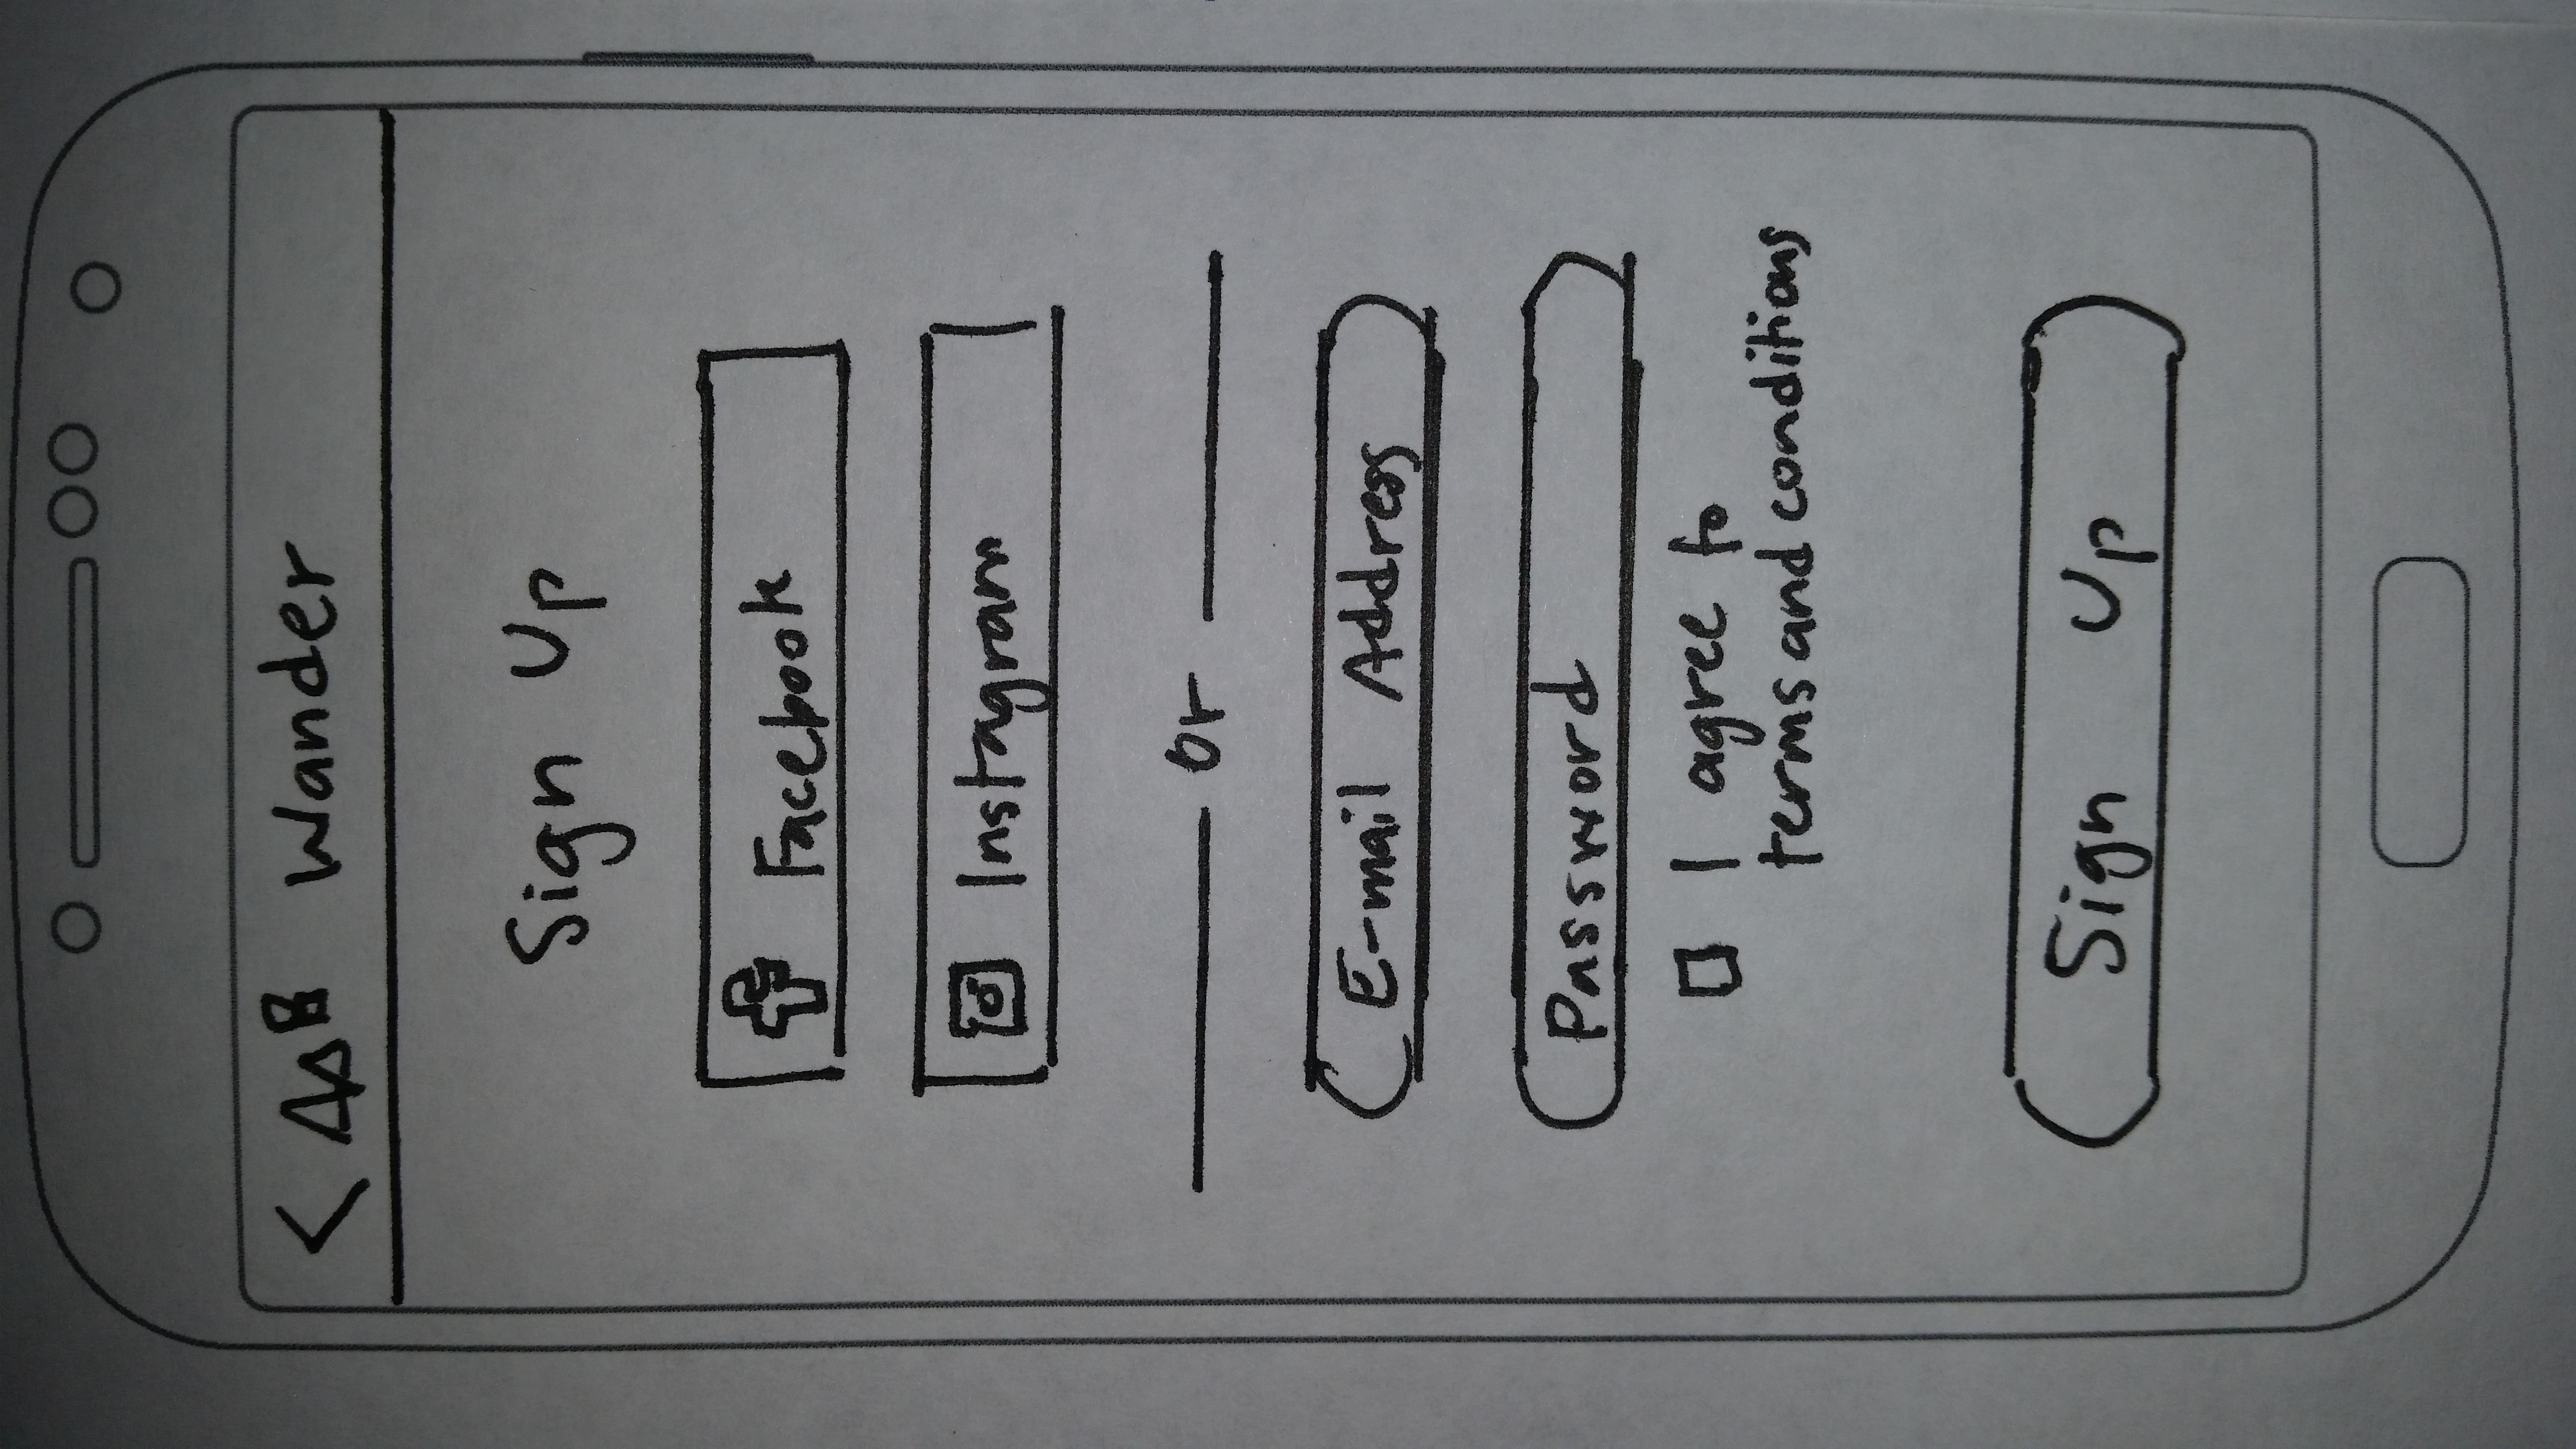 Wander
Sign Up
Facebook
Instagram
or
E-mail Address
Password
I agree to
terms and conditions
Sign Up